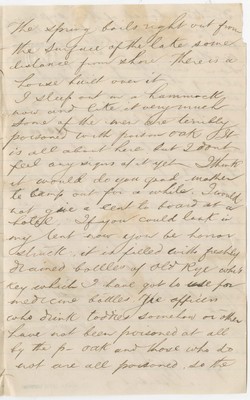 The spring boils right out from
the surface of the lake some
distance from shore there is a
house built over it.
I sleep out in a hammock
now and like it very much
some of the men are terribly
poisoned with poison oak. It
is all about here but I dont
feel any signs of it yet. I think
it would do you good mother
to camp out for a while. I would
not give a cent to board at a
hotel. If you could look in
my tent now you be horror
struck. it is filled with freshly
drained bottles of Old Rye whis
key which I have got to use for
medicine bottles The officers
who drink toddies somehow or other
have not been poisoned at all
by the p- oak and those who do
not are all poisoned so the